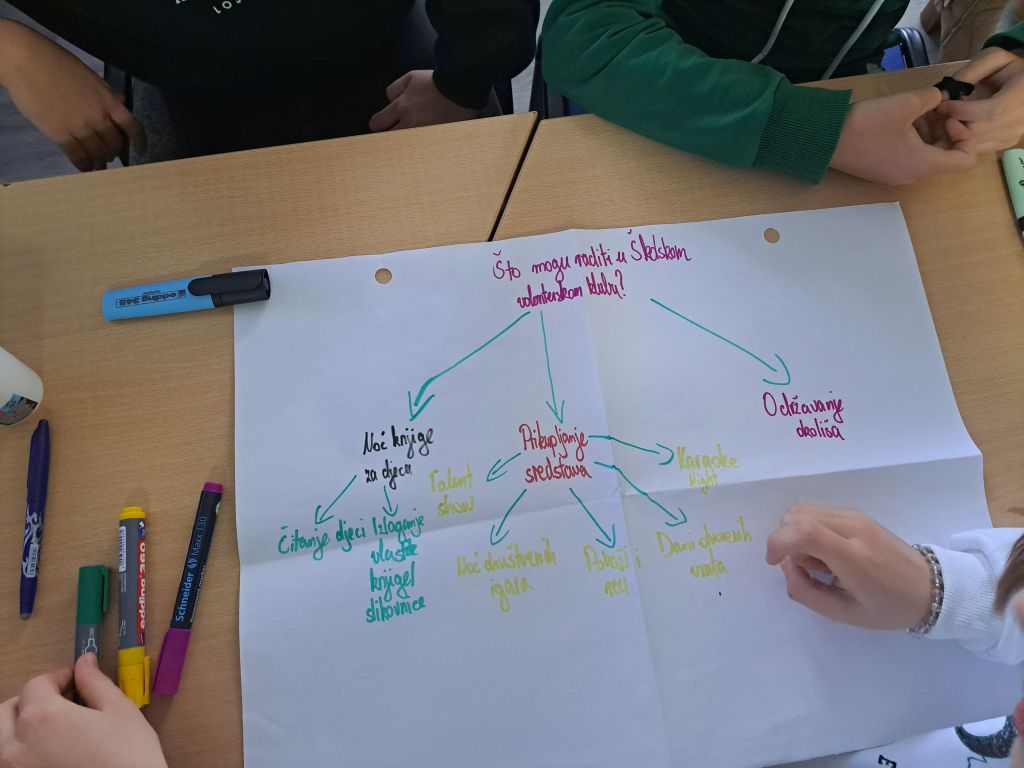 Što mogu raditi u Školskom
volonterskom klubu?
Noć knjige
za djecu
Čitanje djeci
Izlaganje
vlastite
knjige/
slikovnice
Prikupljanje
sredstava
Talent
show
Noć društvenih
igara
Pokaži i
reci
Dani otvorenih
vrata
Karaoke
Night
Održavanje
okoliša
edding 345
edding 360
Schneider Maxx 130